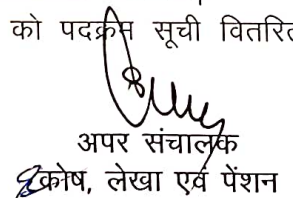 को पदक्रम सूची वितरित
अपर संचालक
कोष, लेखा एवं पेंशन